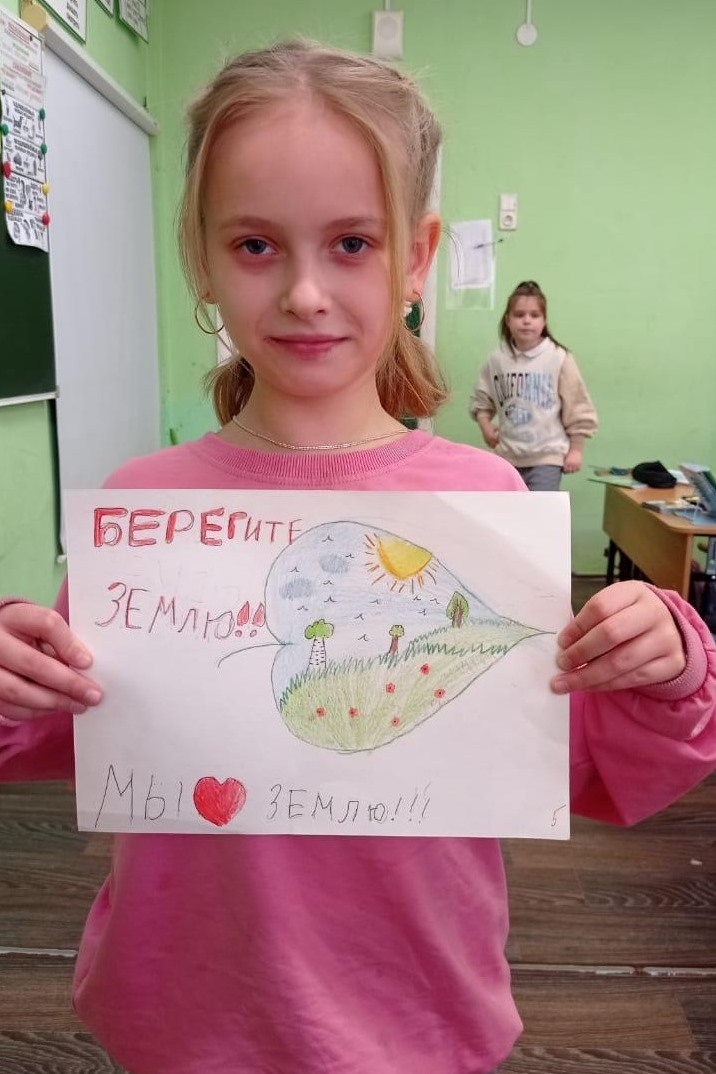 БЕРЕГИТЕ
ЗЕМЛЮ!!
МЫ ЗЕМЛЮ!!!
5
CALIFORNIA